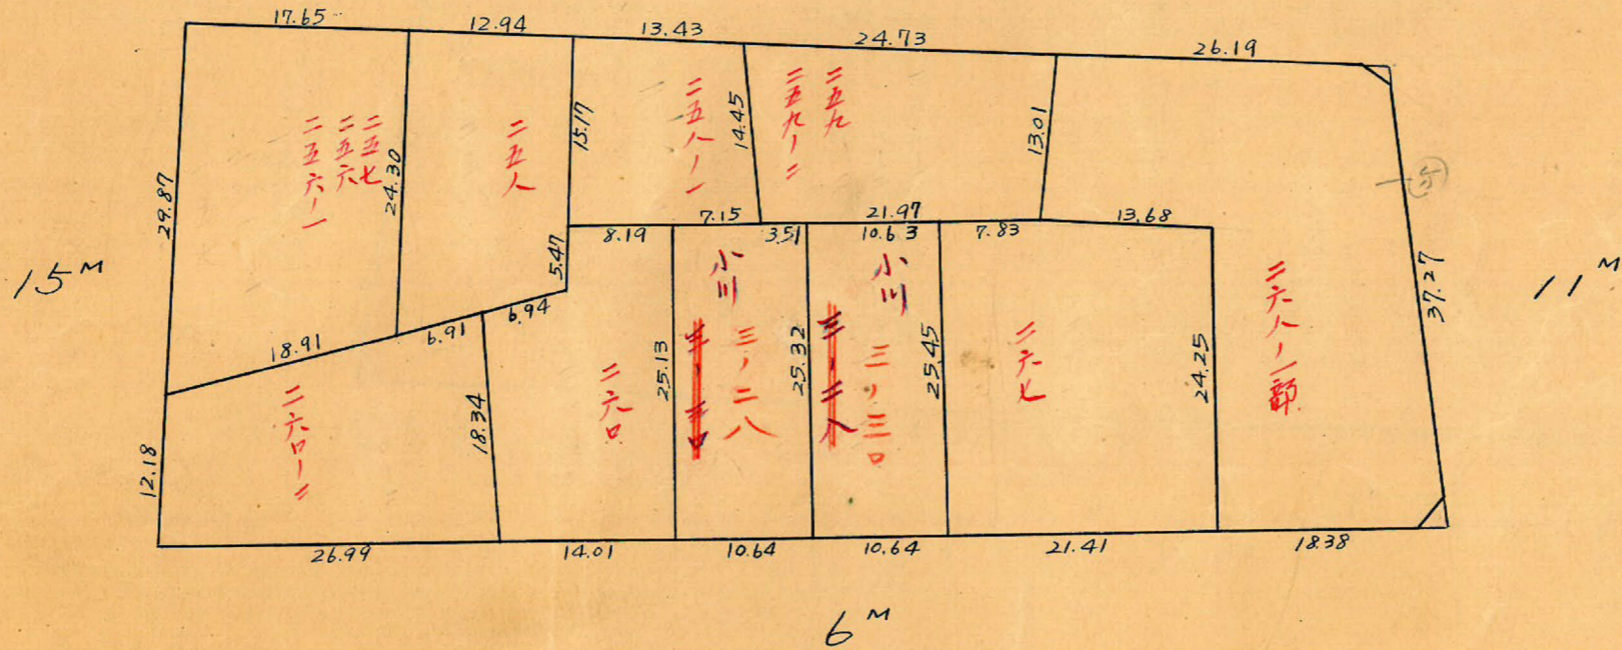 17.65
12.94
13.43
24.73
26.19
29.87
二五七
二五六
二五六ノ一
24.30
二五八
15.17
5.47
二五八ノ一
14.45
二五九
二五九ノ二
13.01
37.27
15M
11M
7.15
21.97
13.68
8.19
3.51
10.63
7.83
18.91
6.91
6.94
12.18
二六〇ノ二
18.34
二六〇
25.13
小川
三ノ二八
三ノ三〇
25.32
小川
三ノ三〇
三ノ二八
25.45
二六七
24.25
二六八ノ一部
26.99
14.01
10.64
10.64
21.41
18.38
6M